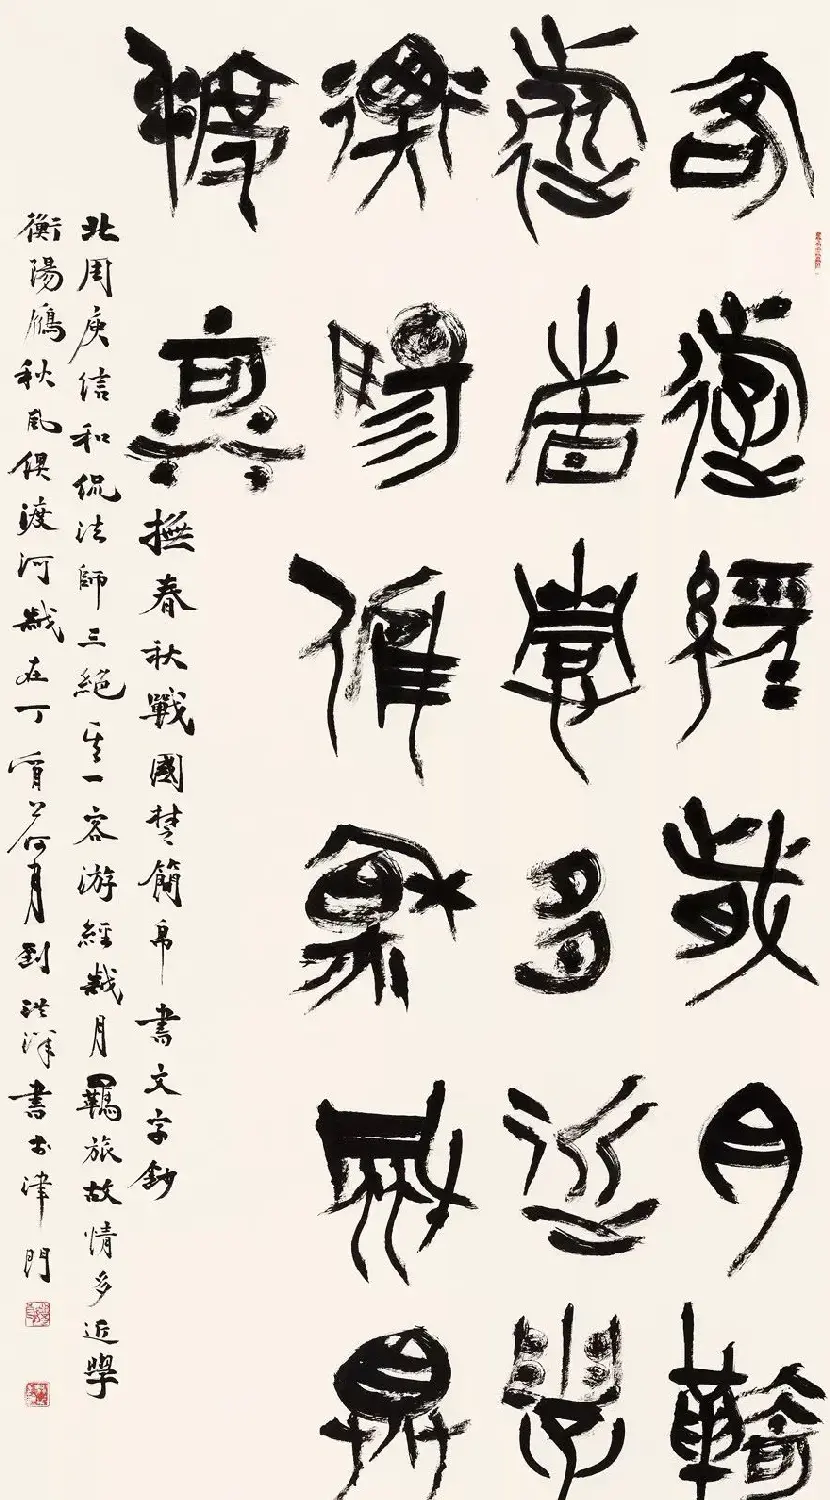 客遊經歲月羈
旅故情多近學
衡陽雁秋風俱
渡河
撫春秋戰國楚簡帛書文字鈔
北周庾信和侃法師三絕其一客游經歲月羈旅故情多近學
衡陽鴈秋風俱渡河歲在丁酉之荷月劉洪洋書於津門